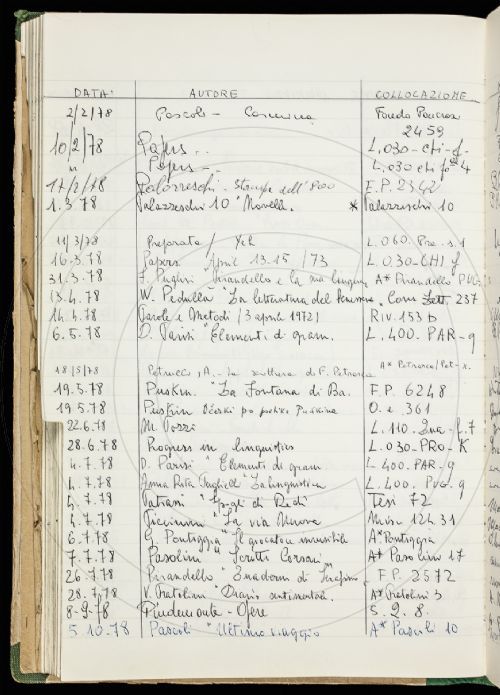 DATA: AUTORE COLLOCAZIONE
2/2/78 Pascoli - Carmina Fondo Pancrazi
2459
10/2/78 Papers .. L.030-chi-f.
" Papers - L.030 chi f 4
17/2/78 Palazzeschi - Stampe dell'800 F.P. 2342
1.3.78 Palazzeschi 10 Novelle * Palazzeschi 10
11/3/78 Preparata / L.060. Pre. s.1
16.3.78 Papers April 13-15 /73 L.030-CHI f
31.3.78 F. Puglisi "Pirandello e la sua lingua A* Pirandello PUG
13.4.78 W. Pedullà "La letteratura del benessere Cons Lett 237
14.4.78 Parole e Metodi (3 aprile 1972) RIV.153 D
6.5.78 D. Parisi "Elementi di gram. L.400. PAR-g
18/5/78 Petrucci, A. - La scrittura di F. Petrarca A* Petrarca/Pet-
19.5.78 Puskin. "La Fontana di Ba. F.P. 6248
19.5.78 Puskin O. e 361
22.6.78 M. Pozzi L.110. f.7
28.6.78 Progress in linguistics L.030-PRO-K
4.7.78 D. Parisi Elementi di gram L 400. PAR-g
4.7.78 Anna Rita Puglielli "La linguistica L.400. PUG.g
4.7.78 "Sogli di Redi Tesi 72
4.7.78 Piccinini "La via Nuova Misc 124.31
6.7.78 G. Pontiggia "Il giocatore invisibile A* Pontiggia
7.7.78 Pasolini "Scritti Corsari" A* Pasolini 17
26.7.78 Pirandello "Quaderni di Serafino" F.P. 2572
28.7.78 V. Pratolini "Diario sentimentale. A* Pratolini 3
8-9.78 Pindemonte - Opere 5.2.8.
5.10.78 Pascoli "Ultimo viaggio A* Pascoli 10